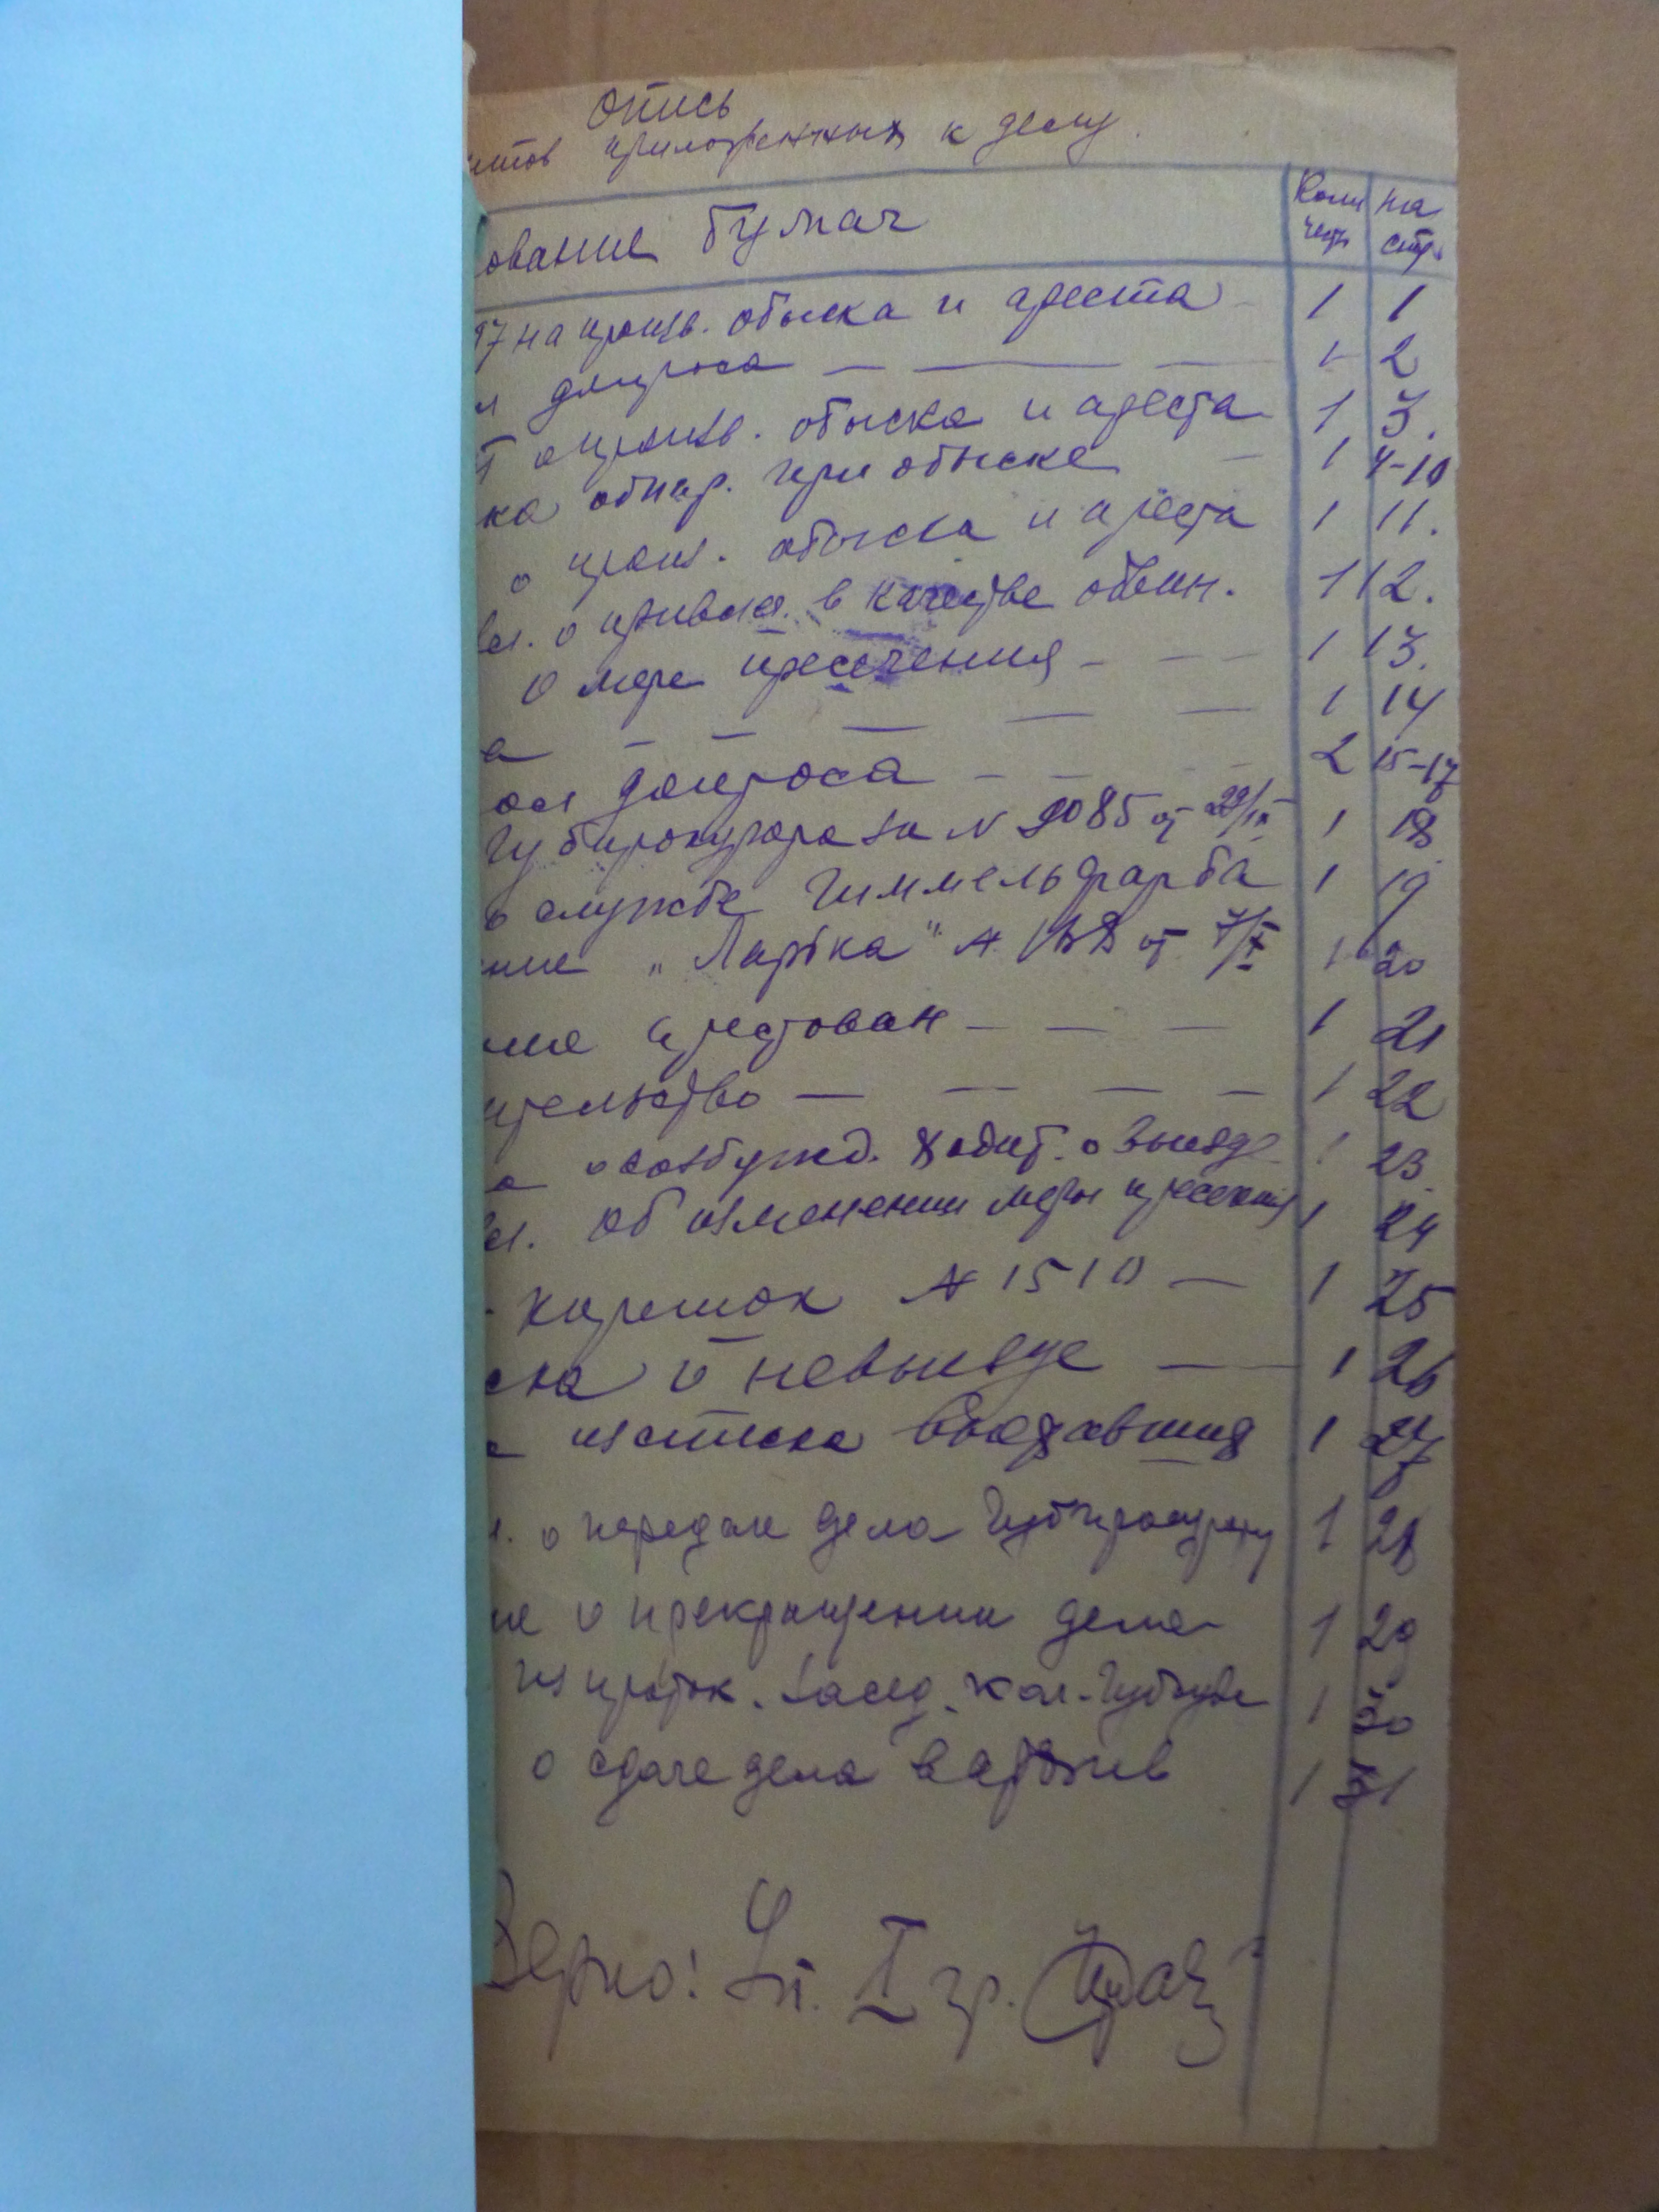 Опись
ентов приложенных к делу.
ование бумаг Коли честв на стр.
97 на произв. обыска и ареста 1 1
л допроса — — — 1 2
о произв. обыска и ареста 1 3.
ка обнар. при обыске — 1 4-10
о произ. обыска и ареста 1 11.
вл. о привлеч. в качестве обвин. 1 12.
о мере пресечения - — — 1 13.
а — — — — — 1 14
ол допроса — — — 2 15-17
Губпрокурора за N 9085 от 29/IX 1 18
о службе Гиммельфарба 1 19
ние „Ларька" N 188 от 7/X 1 20
ние арестован — — — 1 21
ительство — — — — 1 22
а о возбужд. ходат. о выезде 1 23.
вл. об изменении меры пресечения 1 24
- корешок N 1510 — 1 25
ска о невыезде — 1 26
а из списка 1 27
л. о передаче дела Губпрокурору 1 28
ие о прекращении дела - 1 29
из проток. засед. кол. Губсуда 1 30
о сдаче дела в архив 1 31
Верно! I